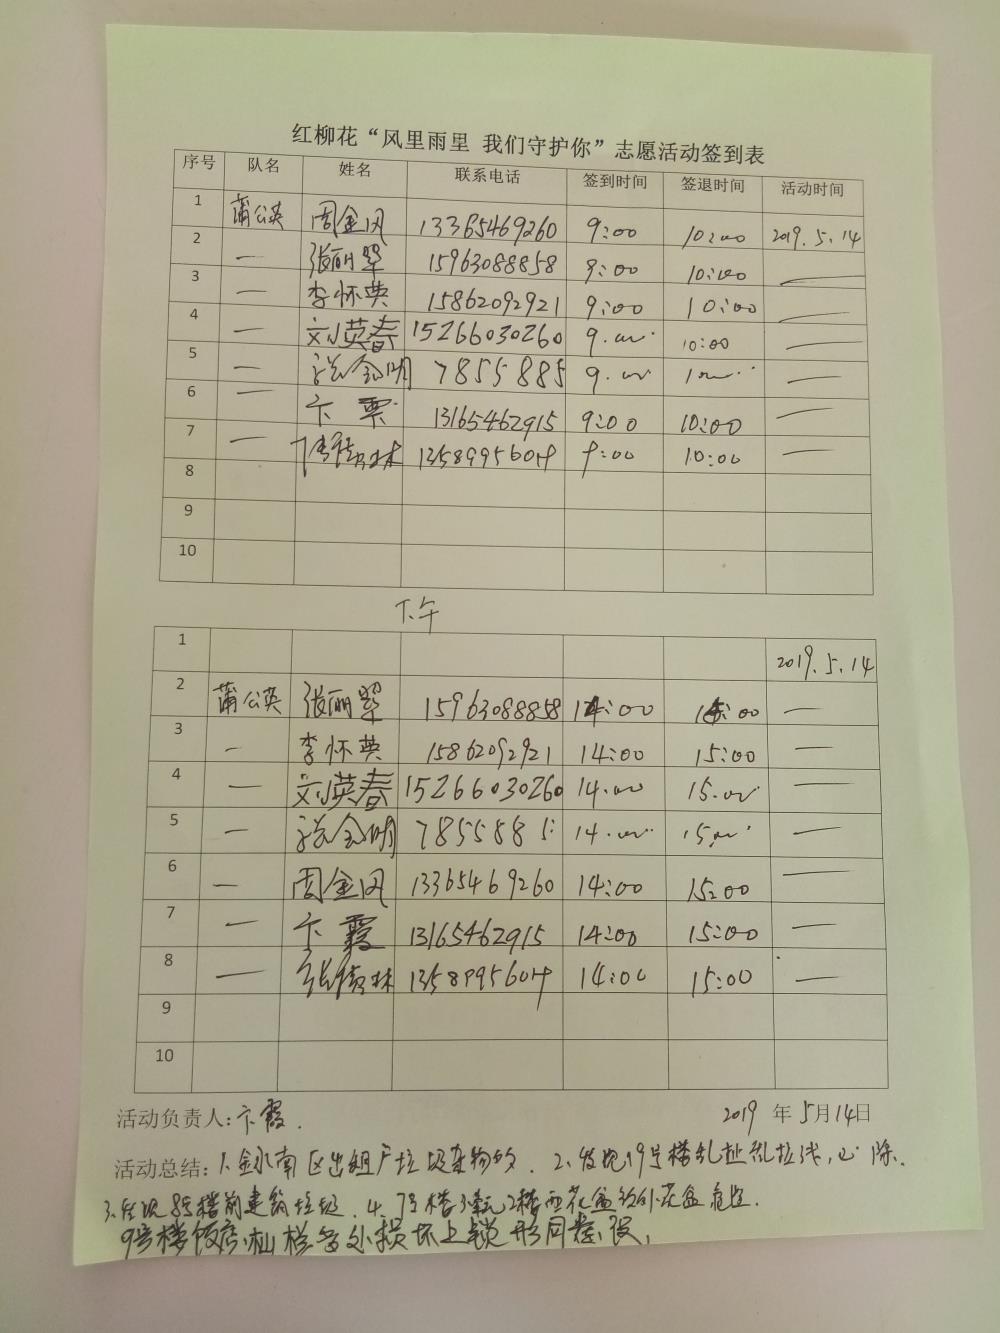 红柳花“风里雨里 我们守护你”志愿活动签到表
序号 队名 姓名 联系电话 签到时间 签退时间 活动时间
1 蒲公英 周金凤 13365469260 9:00 10:00 2019.5.14
2 — 张丽翠 15963088858 9:00 10:00 —
3 — 李怀英 15862092921 9:00 10:00 —
4 — 刘英春 15266030260 9:00 10:00 —
5 — 张金明 7855885 9:00 10:00 —
6 — 卞霞 13165462915 9:00 10:00 —
7 — 13589956014 9:00 10:00 —
8
9
10
下午
1 2019.5.14
2 蒲公英 张丽翠 15963088858 14:00 15:00 —
3 — 李怀英 15862092921 14:00 15:00 —
4 — 刘英春 15266030260 14:00 15:00 —
5 — 张金明 785588 14:00 15:00 —
6 — 周金凤 13365469260 14:00 15:00 —
7 — 卞霞 13165462915 14:00 15:00 —
8 — 13589956014 14:00 15:00 —
9
10
活动负责人:卞霞. 2019 年 5月14日
活动总结: 1. 南区出租户垃圾杂物 2. 发现19号楼乱扯乱拉线,
3. 发现8号楼前建筑垃圾. 4. 7号楼3单元2楼西花盆 外花盆危险.
9号楼饭店 栏多处损坏上锁形同虚设,